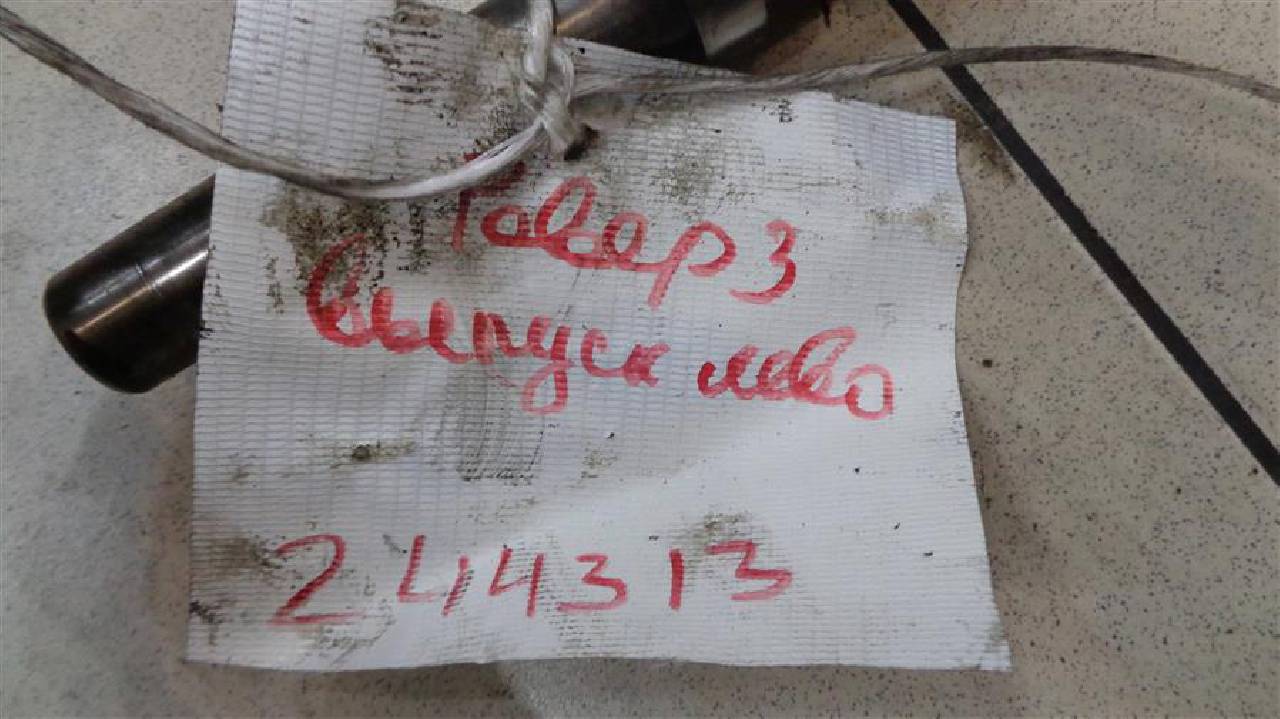 Ровер 3
выпуск лево
244313